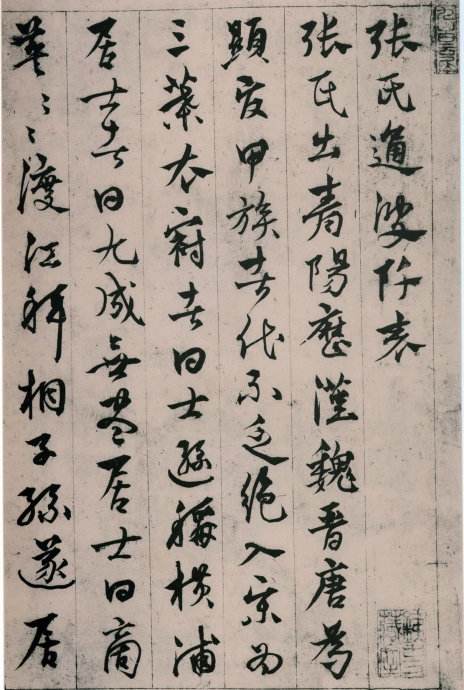 張氏通波阡表
張氏出青陽歷漢魏晉唐為
顯官甲族者代不乏絕入宋為
三葉衣冠者曰士遜稱橫浦
居士者曰九成無盡居士曰商
英〻〻渡江拜相子孫遂居